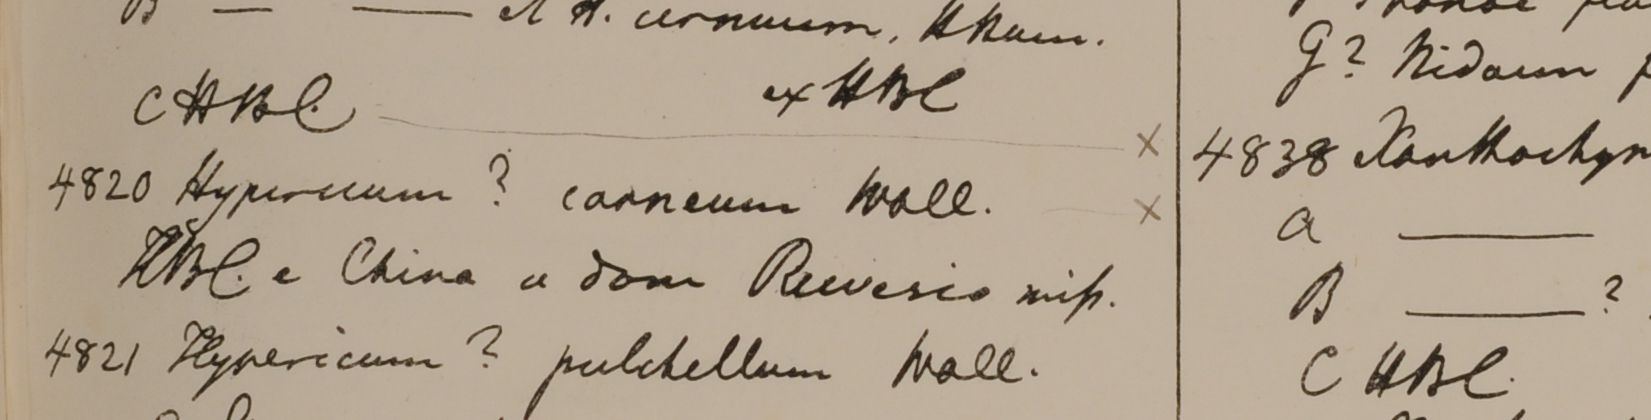 B — —— et H. cernuum, Wham.
C HBC. ex HBC
4820 Hypericum ? carneum Wall.
HBC. e China a dom Reevesio miſs.
4821 Hypericum ? pulchellum Wall.
G? Nidaun
4838 Xanthochym
a ——
B —— ?
C HBC.